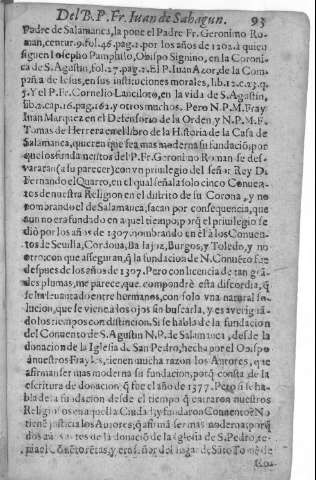 Del B. P. Fr. Iuan de Sahagun. 93
Padre de Salamanca, la pone el Padre Fr. Geronimo Ro-
man, centur. 9. fol. 46. pag. 2. por los años de 1202. à quien
siguen Iosepho Pamphilo, Obispo Signino, en la Coroni-
ca de S. Agustin, fol. 27. pag. 2. El P. Iuan Azor, de la Com-
pañia de Iesus, en sus instituciones morales, lib. 12. c. 23. q.
5. Y el P. Fr. Cornelio Lanciloto, en la vida de S. Agustin,
lib. 2. cap. 16. pag. 162. y otros muchos. Pero N. P. M. Fray
Iuan Marquez en el Defensorio de la Orden, y N. P. M. F.
Tomas de Herrera en el libro de la Historia de la Casa de
Salamanca, quieren que sea mas moderna su fundaciõ; por
que los fundamentos del P. Fr. Geronimo Roman se des-
varatan (a su parecer) con vn privilegio del señor Rey D.
Fernando el Quarto, en el qual señala solo cinco Conuen-
tos de nuestra Religion en el distrito de su Corona, y no
nombrando el de Salamanca, sacan por consequencia, que
aun no era fundado en aquel tiempo, porq̃ el privilegio se
dió por los años de 1307. nombrando en èl à los Conuen-
tos de Seuilla, Cordoua, Badajoz, Burgos, y Toledo, y no
otro: con que asseguran, q̃ la fundacion de N. Conuẽto fue
despues de los años de 1307. Pero con licencia de tan grã-
des plumas, me parece, que compondrè esta discordia, q̃
se ha leuantado entre hermanos, con solo vna natural so-
lucion, que se viene à los ojos sin buscarla, y es averiguã-
do los tiempos con distincion. Si se habla de la fundacion
del Conuento de S. Agustin N. P. de Salamanca, desde la
donacion de la Iglesia de San Pedro, hecha por el Obispo
à nuestros Frayles, tienen mucha razon los Autores, que
afirman ser mas moderna su fundacion, porq̃ consta de la
escritura de donacion q̃ fue el año de 1377. Pero si se ha-
bla de la fundacion desde el tiempo q̃ entraron nuestros
Religiosos en aquella Ciudad, y fundaron Conuento: No
tienẽ justicia los Autores, q̃ afirmã ser mas moderna; porq̃
dos años antes de la donaciõ de la Iglesia de S. Pedro, te-
nia el Cõuẽto rẽtas, y era señor del lugar de Sãto Tomè de
Ro-